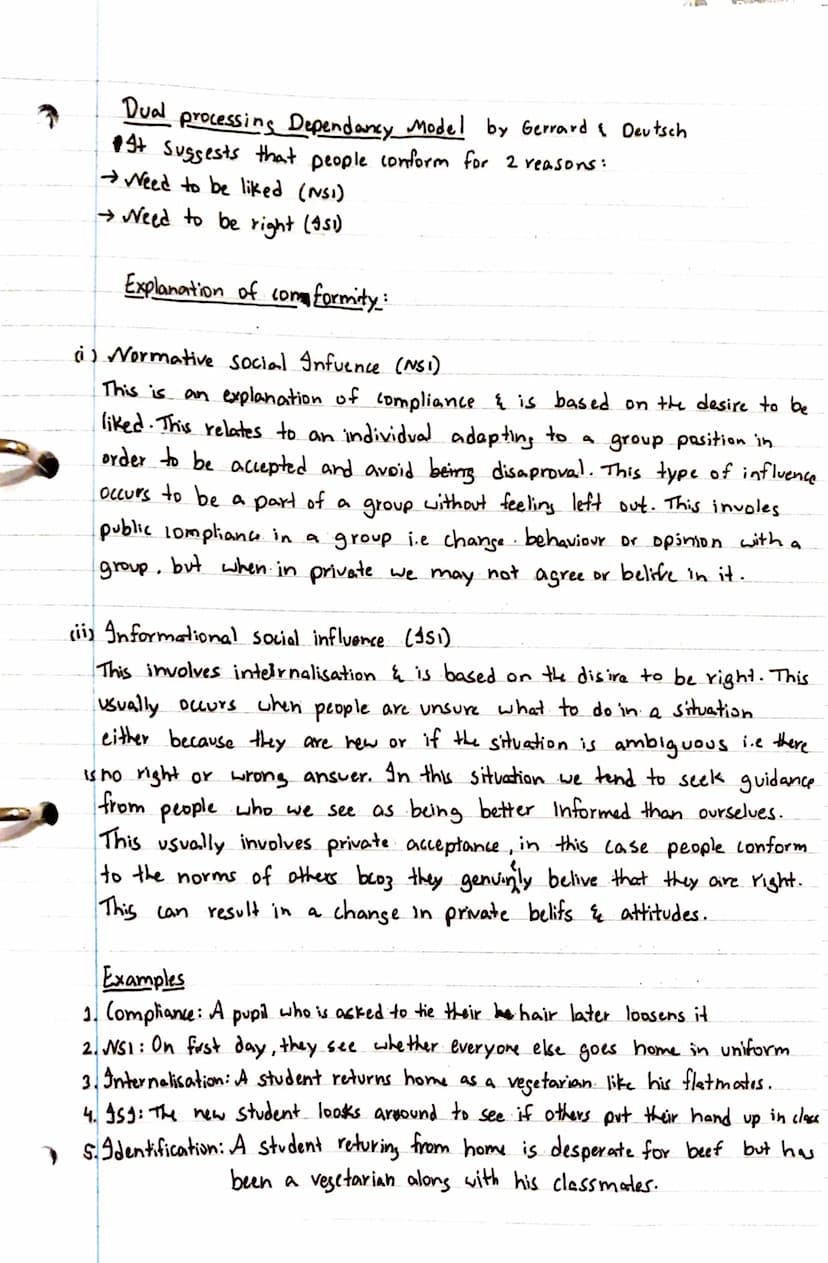 Dual processing Dependancy Model by Gerrard & Deutsch
It suggests that people conform for 2 reasons:
→ Need to be liked (NSI)
→ Need to be right (ISI)
Explanation of conformity:
(i) Normative social Infuence (NSI)
This is an explanation of compliance & is based on the desire to be
liked. This relates to an individual adapting to a group position in
order to be accepted and avoid being disaproval. This type of influence
occurs to be a part of a group without feeling left out. This involes
public compliance in a group i.e change behaviour or opinion with a
group, but when in private we may not agree or belife in it.
(ii) Informational social influence (ISI)
This involves internalisation & is based on the disire to be right. This
usually occurs when people are unsure what to do in a situation
either because they are new or if the situation is ambiguous i.e there
is no right or wrong answer. In this situation we tend to seek guidance
from people who we see as being better Informed than ourselves.
This usually involves private acceptance, in this case people conform
to the norms of others bcoz they genuinly belive that they are right.
This can result in a change in private belifs & attitudes.
Examples
1. Compliance: A pupil who is asked to tie their hair later loosens it
2. NSI: On first day, they see whether everyone else goes home in uniform
3. Internalisation: A student returns home as a vegetarian like his flatmates.
4. ISI: The new student looks around to see if others put their hand up in class
5. Identification: A student returing from home is desperate for beef but has
been a vegetarian along with his classmates.